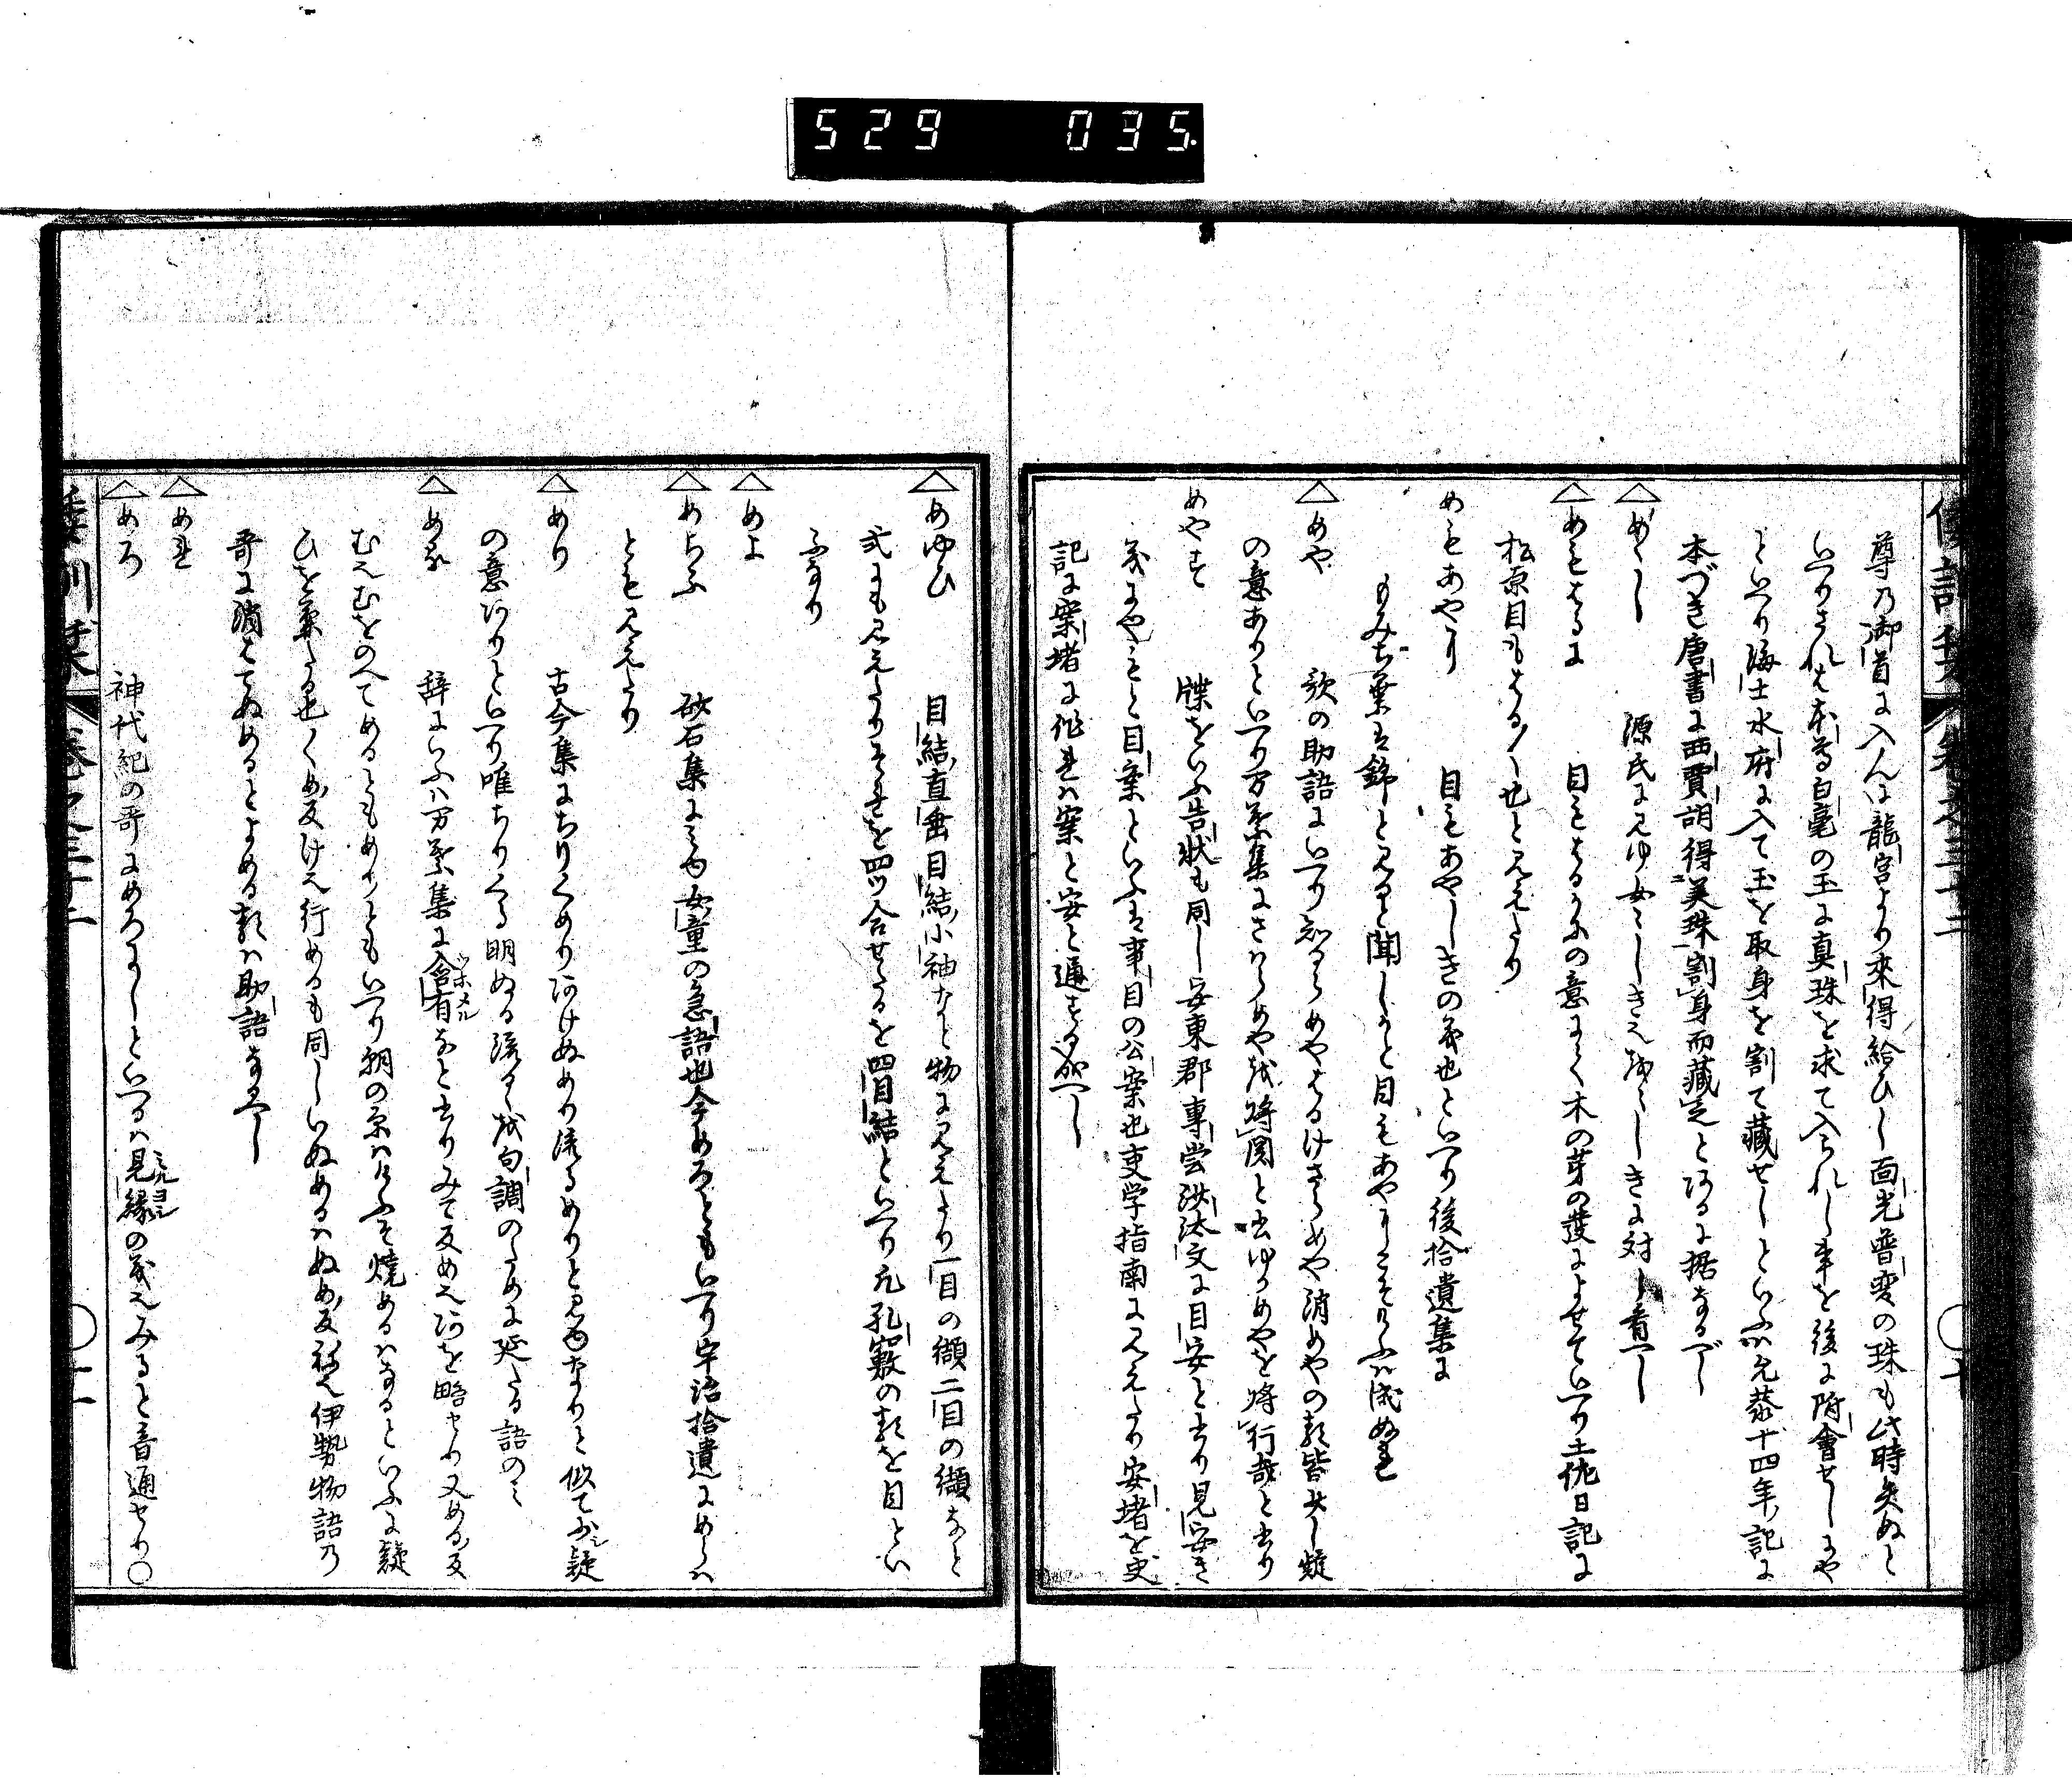 529 035.
尊乃御首に入んは龍宮より來得給ひし面光普変の珠も此時失ぬと
いへりされは本尊白毫の玉に真珠を求て入られし事を後に附會せしにや
といへり海士水府に入て玉を取身を割て藏せしといふハ允恭十四年記に
本づき唐書に西賈胡得美珠割身而藏之とあるに据なるべし
△めゝし　源氏に見ゆ女々しき也をゝしきに対し看へし
△めもはるに　目もはるかの意にて木の芽の發によせていへり土佐日記に
松原目もはる〳〵也と見えたり
めもあやに　目もあやしきの義也といへり後拾遺集に
もみち葉は錦と見ると聞しかと目もあやにこそけふハ成ぬれ
△めや　歌の助語にいへり知らめやはるけさらめや消めやの類皆大し疑
の意ありといへり万葉集にさハらめや我将関と書ゆかめやを将行哉と書り
めやす　牒をいふ告状も同し安東郡専當沙汰文に目安と書り見安き
義にやもと目案といふは事目の公案也吏学指南に見えたり安堵を史
記に案堵に作れハ案と安と通する成へし
△めゆひ　目結直垂目結小袖なと物に見えたり一目の纈二目の纈なと
式にも見えたりそれを四ツ合せたるを四目結といへり凡孔竅の類を目とい
ふなり
△めよ
△めらふ　砂石集にみゆ女童の急語也今めろともいへり宇治拾遺にめらハ
とも見えたり
△めり　古今集にちりぬめりあけぬめり流るめりと見ゆなりと似て少シ疑
の意ありといへり唯ちりぬる明ぬる流るを句調のために延たる語のミ
△める　辞にいふハ万葉集に含有ツホメルなと書りみて反め也あを略せり又める反
むんむをのへてめるともめりともいへり朝の原ハけふそ燒めるハなるといふに疑
ひを兼たる也くめ反け也行めるも同しいぬめるハぬめ反ね也伊勢物語乃
哥に消はてぬめるとよめる類ハ助語なるへし
△めれ
△めろ　神代紀の哥にめろよしといへるハ見縁ミルヨシの義也みると音通セり〇